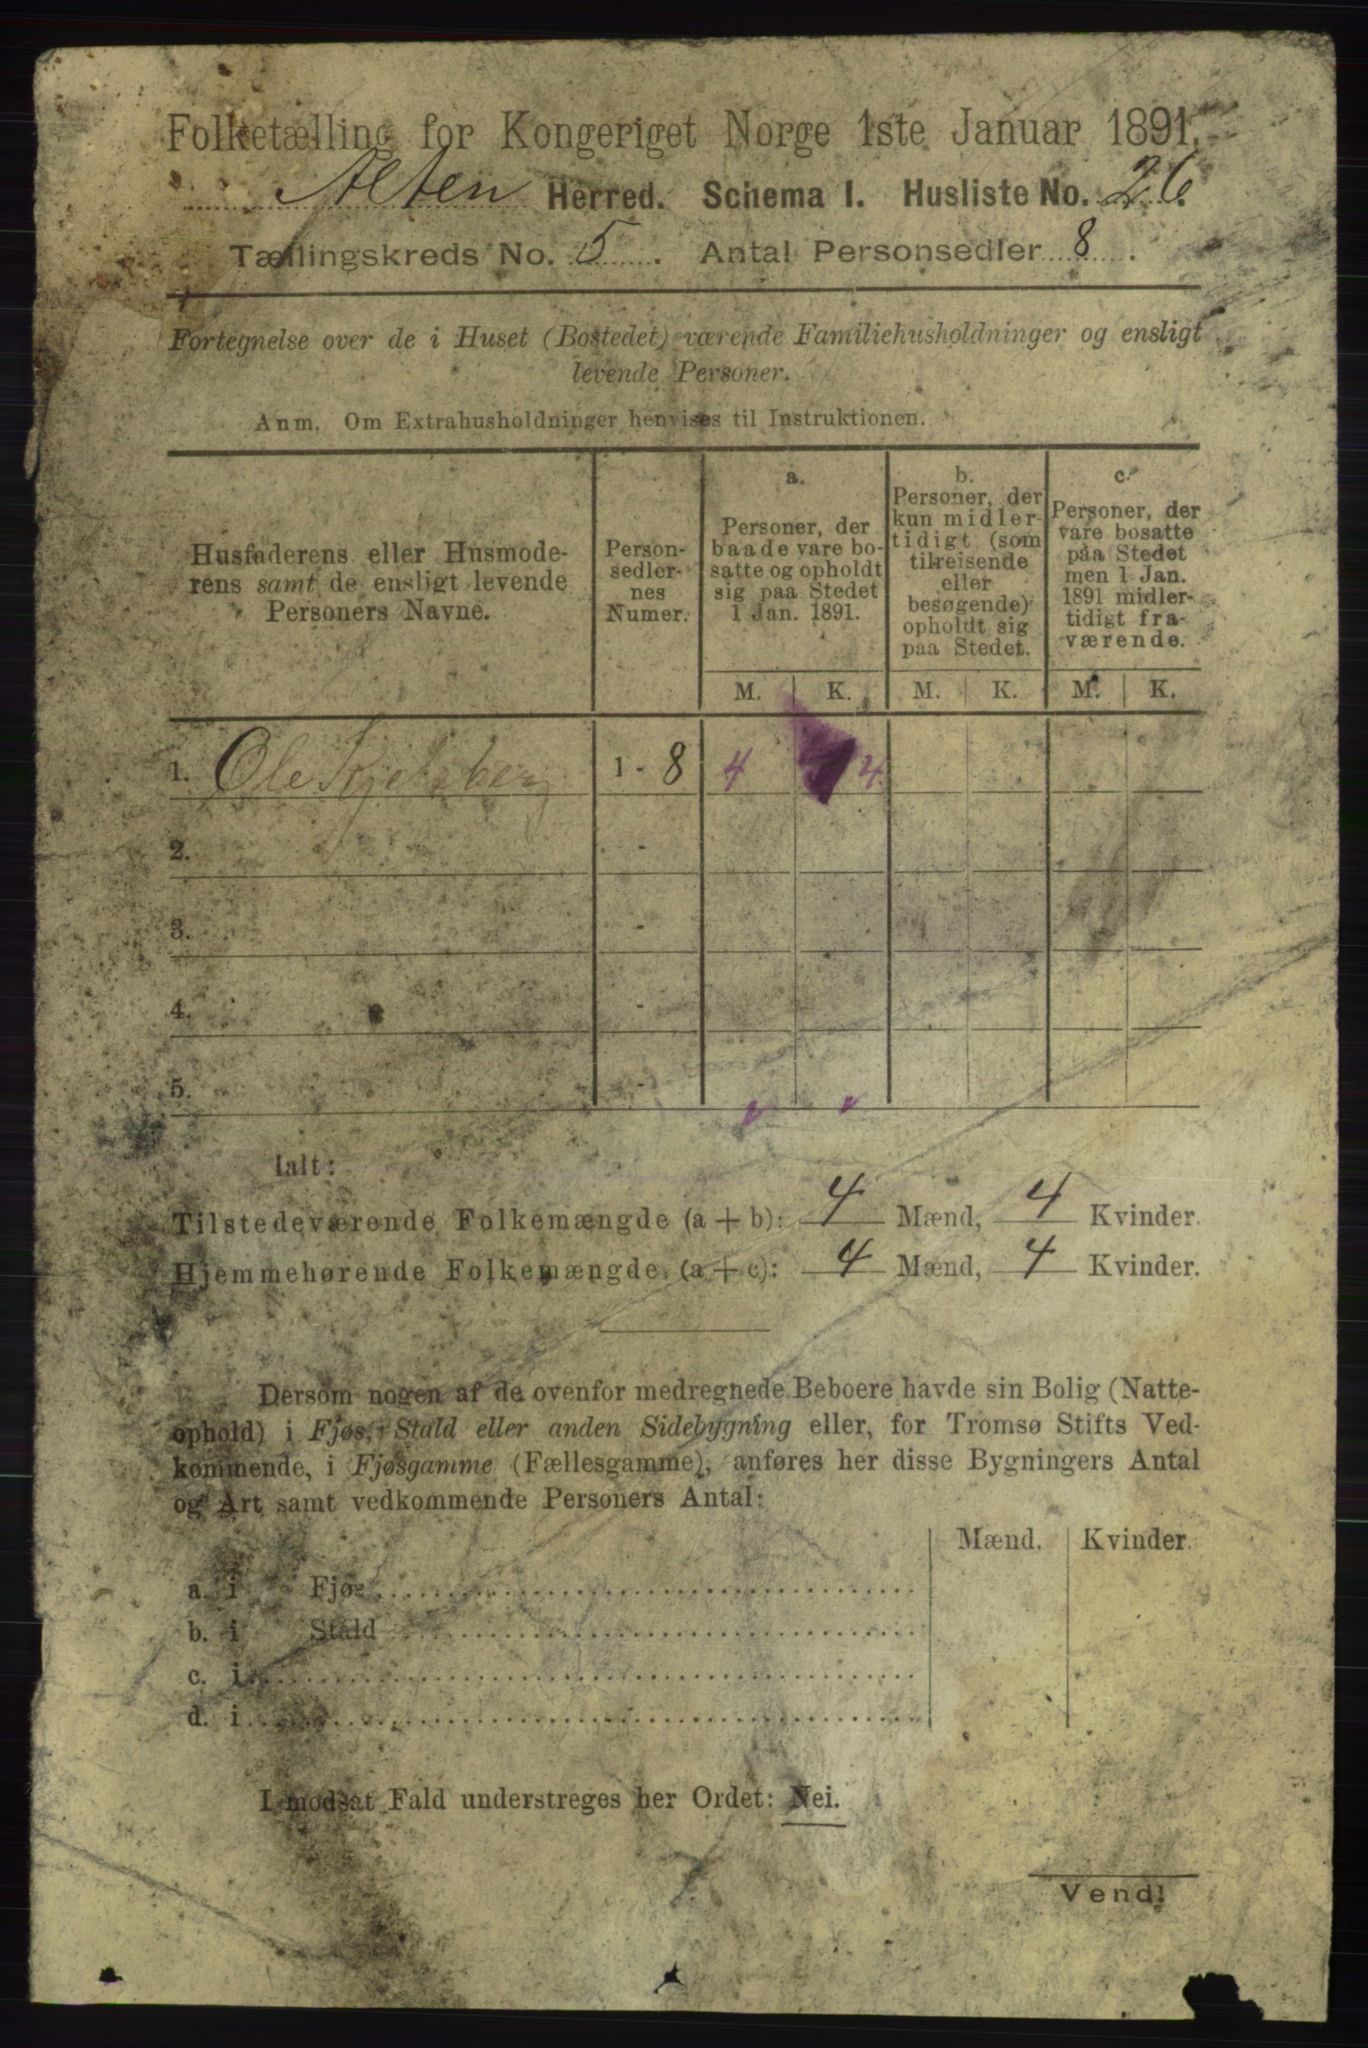 Folketælling for Kongeriget Norge 1ste Januar 1891.
Alten Herred. Schema I. Husliste No. 26.
Tællingskreds No. 5. Antal Personsedler 8.
Fortegnelse over de i Huset (Bostedet) værende Familiehusholdninger og ensligt
levende Personer.
Anm. Om Extrahusholdninger henvises til Instruktionen.
Husfaderens eller Husmode-
rens samt de ensligt levende
Personers Navne.
Person-
sedler-
nes
Numer.
a.
Personer, der
baade vare bo-
satte og opholdt
sig paa Stedet
1 Jan. 1891.
b.
Personer, der
kun midler-
tidigt (som
tilreisende
eller
besøgende)
opholdt sig
paa Stedet.
c.
Personer, der
vare bosatte
paa Stedet
men 1 Jan.
1891 midler-
tidigt fra-
værende.
M. K. M. K. M. K.
1. Ole Kjelsberg 1 - 8 4 4
2. -
3. -
4. -
5. -
Ialt:
Tilstedeværende Folkemængde (a + b): 4 Mænd, 4 Kvinder.
Hjemmehørende Folkemængde (a + c): 4 Mænd, 4 Kvinder.
Dersom nogen af de ovenfor medregnede Beboere havde sin Bolig (Natte-
ophold) i Fjøs, Stald eller anden Sidebygning eller, for Tromsø Stifts Ved-
kommende, i Fjøsgamme (Fællesgamme), anføres her disse Bygningers Antal
og Art samt vedkommende Personers Antal:
Mænd. Kvinder.
a. i Fjøs
b. i Stald
c. i
d. i
I modsat Fald understreges her Ordet: Nei.
Vend!